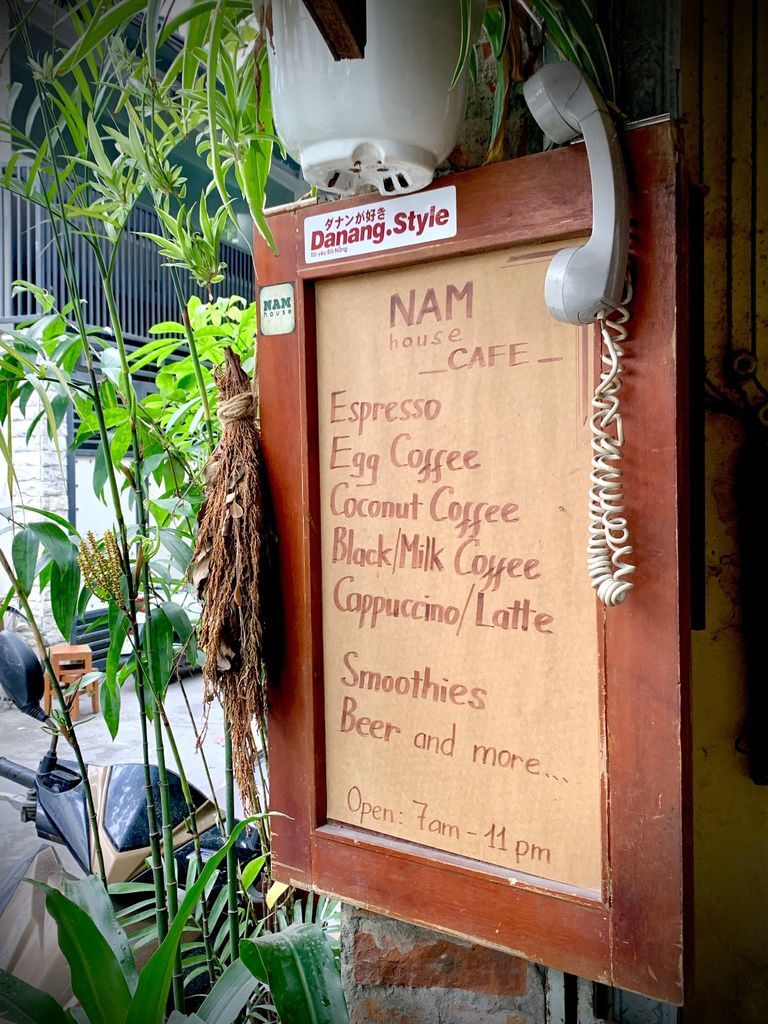 ダナンが好き
Danang.Style
Tôi yêu Đà Nẵng
NAM
house
NAM
house
CAFE
Espresso
Egg Coffee
Coconut Coffee
Black/Milk Coffee
Cappuccino/Latte
Smoothies
Beer and more...
Open: 7am - 11 pm